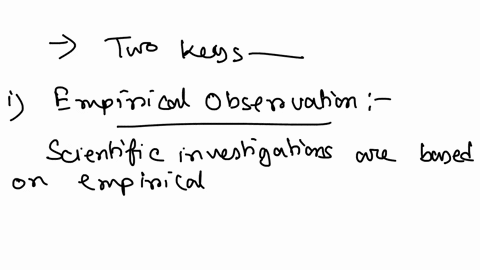 → Two keys —
i) Empirical Observation :-
Scientific investigations are based
on empirical